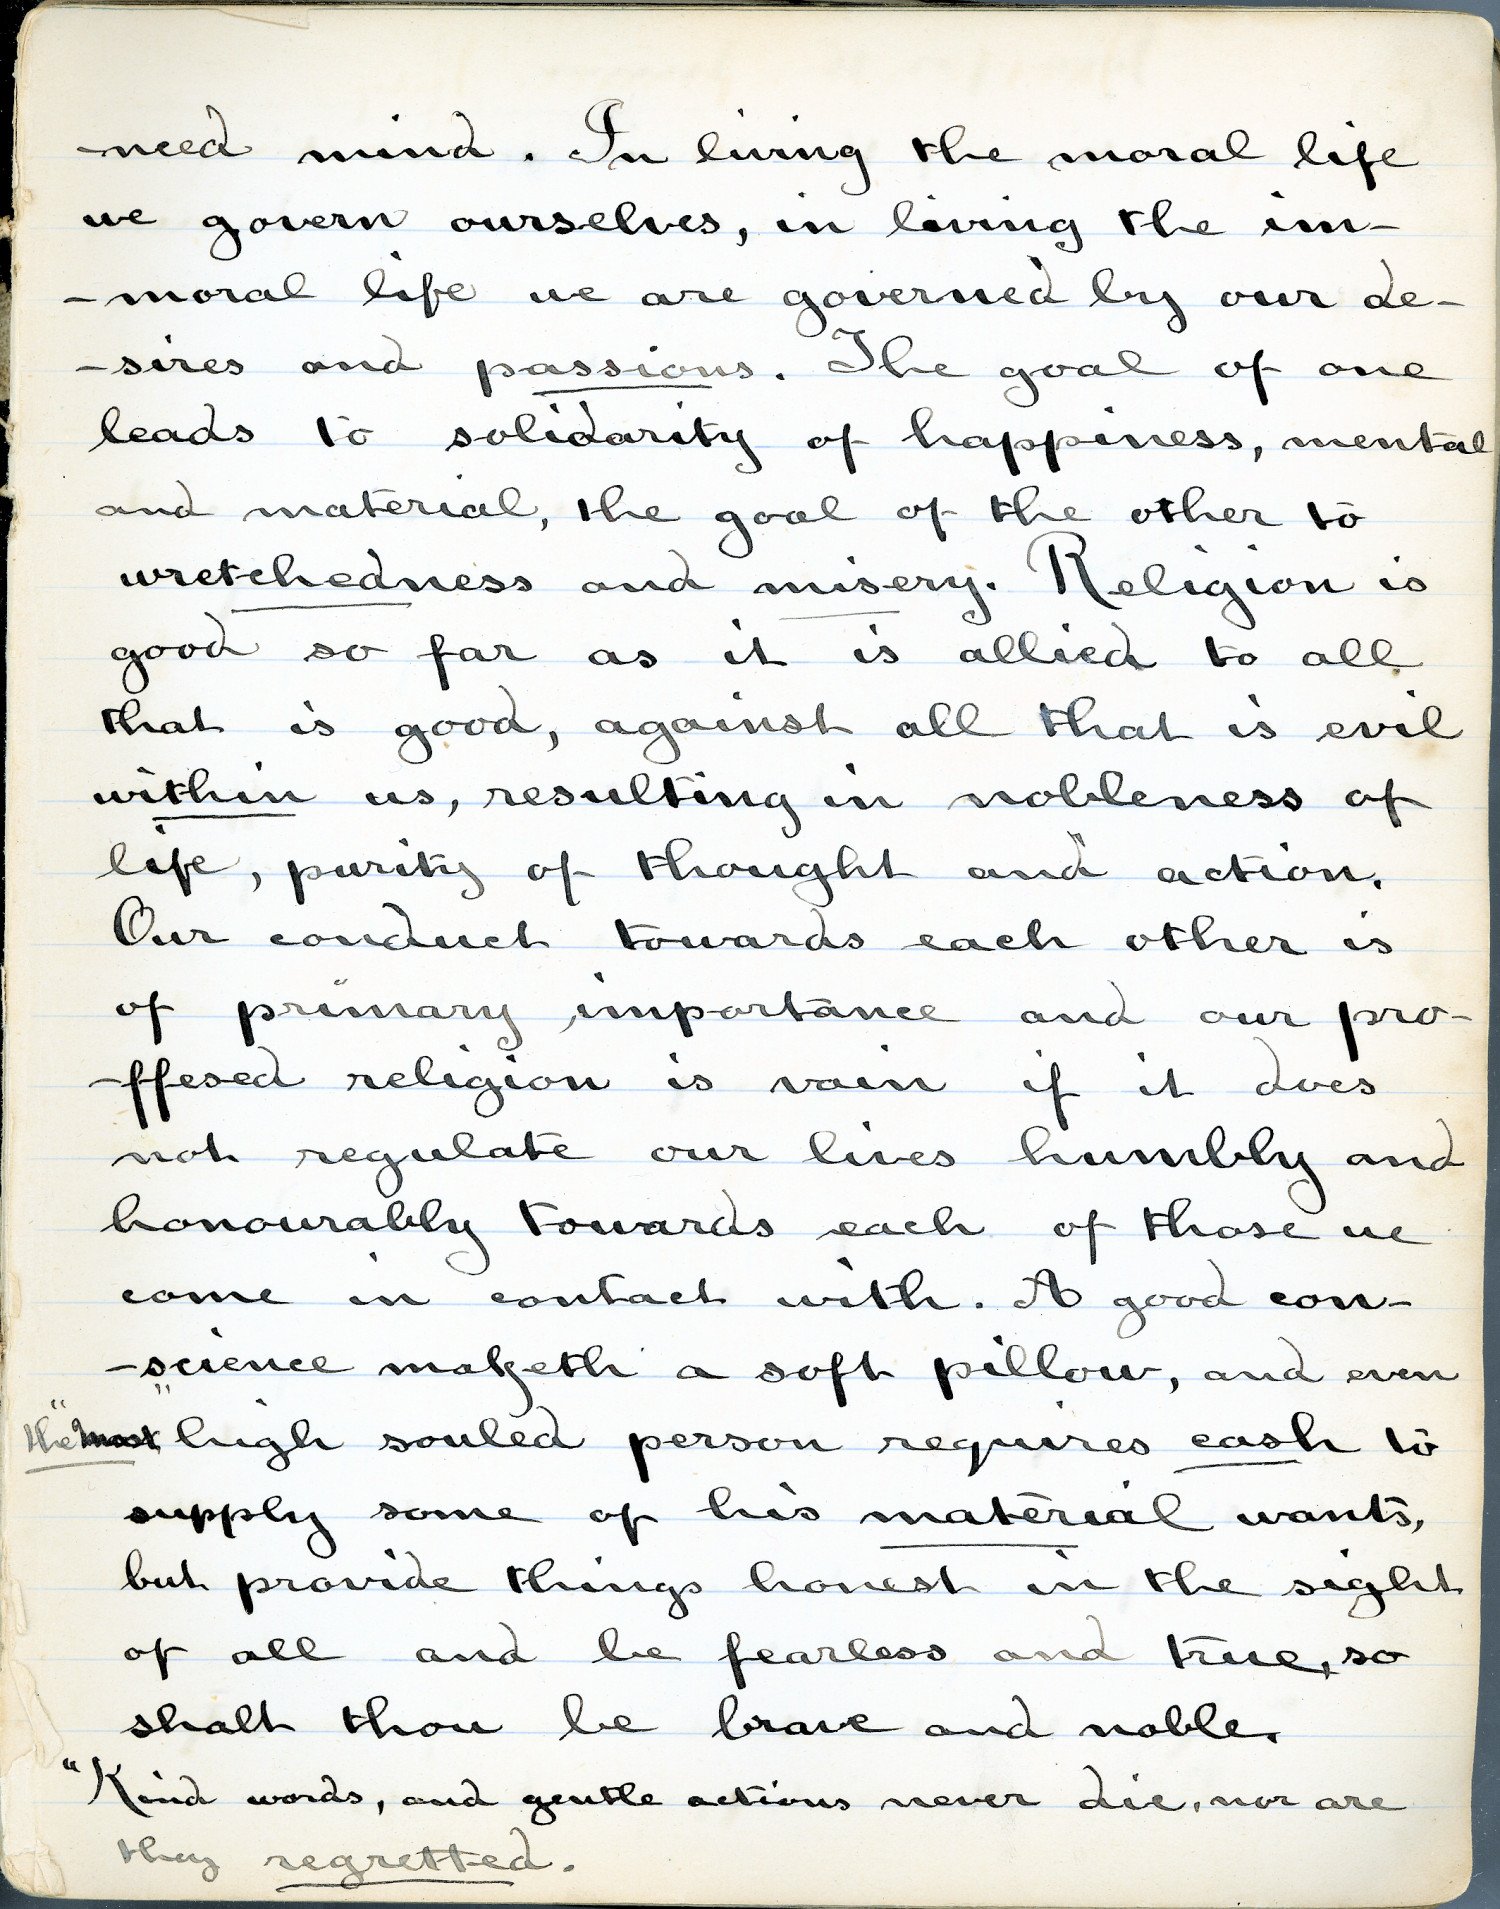 -need mind. In living the moral life
we govern ourselves, in living the im-
-moral life we are governed by our de-
-sires and passions. The goal of one
leads to solidarity of happiness, mental
and material, the goal of the other to
wretchedness and misery. Religion is
good so far as it is allied to all
that is good, against all that is evil
within us, resulting in nobleness of
life, purity of thought and action.
Our conduct towards each other is
of primary importance and our pro-
-ffesed religion is vain if it does
not regulate our lives humbly and
honourably towards each of those we
come in contact with. A good con-
-science maketh a soft pillow, and even
the "most" high souled person requires cash to
supply some of his material wants,
but provide things honest in the sight
of all and be fearless and true, so
shalt thou be brave and noble.
"Kind words, and gentle actions never die, nor are
they regretted.